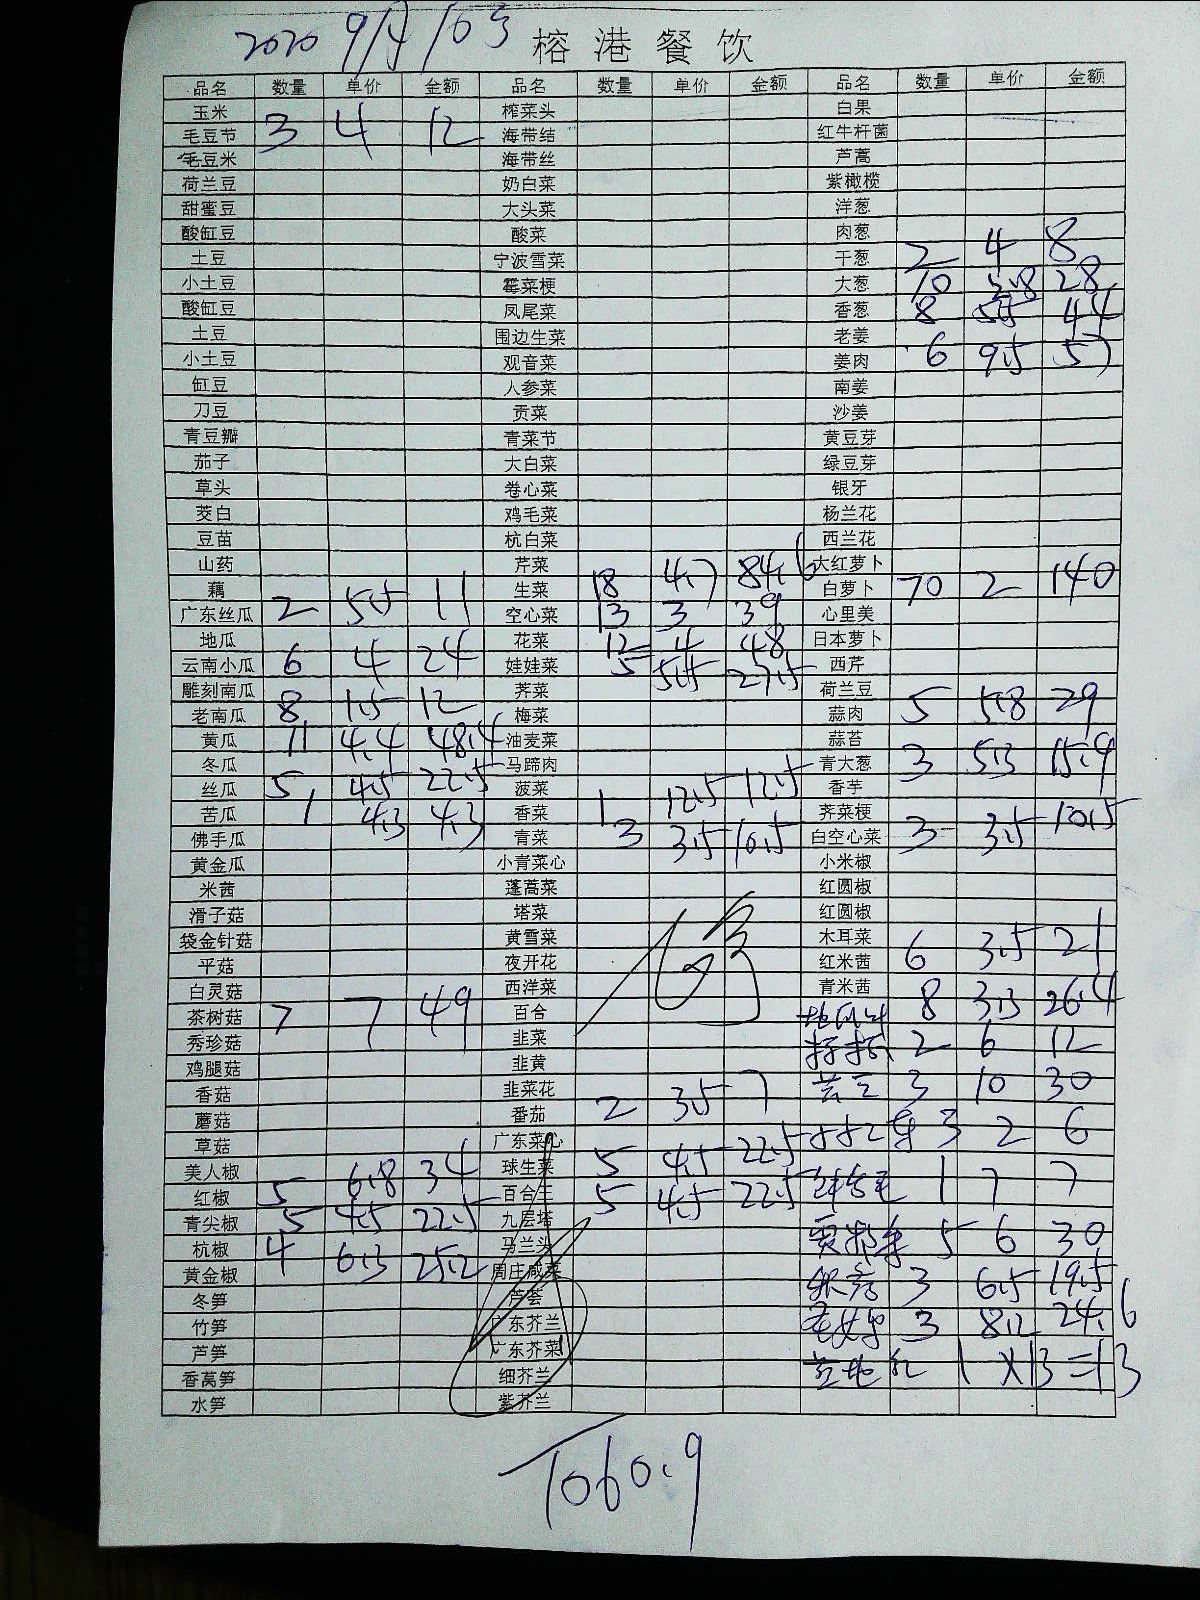 2020 9月10号 榕港餐饮
品名 数量 单价 金额 品名 数量 单价 金额 品名 数量 单价 金额
玉米 榨菜头 白果
毛豆节 3 4 12 海带结 红牛杆菌
毛豆米 海带丝 芦蒿
荷兰豆 奶白菜 紫橄榄
甜蜜豆 大头菜 洋葱
酸缸豆 酸菜 肉葱
土豆 宁波雪菜 干葱 2 4 8
小土豆 霉菜梗 大葱 10 2.8 28
酸缸豆 凤尾菜 香葱 8 5.5 44
土豆 围边生菜 老姜
小土豆 观音菜 姜肉 6 9.5 57
缸豆 人参菜 南姜
刀豆 贡菜 沙姜
青豆瓣 青菜节 黄豆芽
茄子 大白菜 绿豆芽
草头 卷心菜 银牙
茭白 鸡毛菜 杨兰花
豆苗 杭白菜 西兰花
山药 芹菜 大红萝卜
藕 生菜 18 4.7 84.6 白萝卜 70 2 140
广东丝瓜 2 5.5 11 空心菜 13 3 39 心里美
地瓜 花菜 12 4 48 日本萝卜
云南小瓜 6 4 24 娃娃菜 5 5.5 27.5 西芹
雕刻南瓜 荠菜 荷兰豆
老南瓜 8 1.5 12 梅菜 蒜肉 5 5.8 29
黄瓜 11 4.4 48.4 油麦菜 蒜苔
冬瓜 马蹄肉 青大葱 3 5.3 15.9
丝瓜 5 4.5 22.5 菠菜 香芋
苦瓜 1 4.3 4.3 香菜 1 12.5 12.5 荠菜梗
佛手瓜 青菜 3 3.5 10.5 白空心菜 3 3.5 10.5
黄金瓜 小青菜心 小米椒
米茜 蓬蒿菜 红圆椒
滑子菇 塔菜 红圆椒
袋金针菇 黄雪菜 木耳菜
平菇 夜开花 红米茜 6 3.5 21
白灵菇 西洋菜 青米茜
茶树菇 7 7 49 百合 8 3.3 26.4
秀珍菇 韭菜 2 6 12
鸡腿菇 韭黄
香菇 韭菜花 3 10 30
蘑菇 番茄 2 3.5 7
草菇 广东菜心 3 2 6
美人椒 球生菜 5 4.5 22.5
红椒 5 6.8 34 百合王 5 4.5 22.5 1 7 7
青尖椒 5 4.5 22.5 九层塔
杭椒 4 6.3 25.2 马兰头 5 6 30
黄金椒 周庄咸菜 3 6.5 19.5
冬笋 芦荟
竹笋 广东芥兰 3 8.2 24.6
芦笋 广东芥菜
香莴笋 细芥兰 1 X13=13
水笋 紫芥兰
1060.9